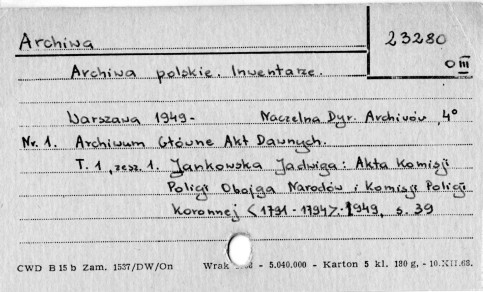 Archiwa 23280
O III
Archiwa polskie. Inwentarze.
Warszawa 1949- Naczelna Dyr. Archiwów, 4°
Nr. 1. Archiwum Główne Akt Dawnych.
T. 1, zesz. 1. Jankowska Jadwiga: Akta Komisji
Policji Obojga Narodów i Komisji Policji
Koronnej <1791-1794>. 1949, s. 39
CWD B 15 b Zam. 1537/DW/On Wrak - 5.040.000 - Karton 5 kl. 180 g. - 10.XII.68.